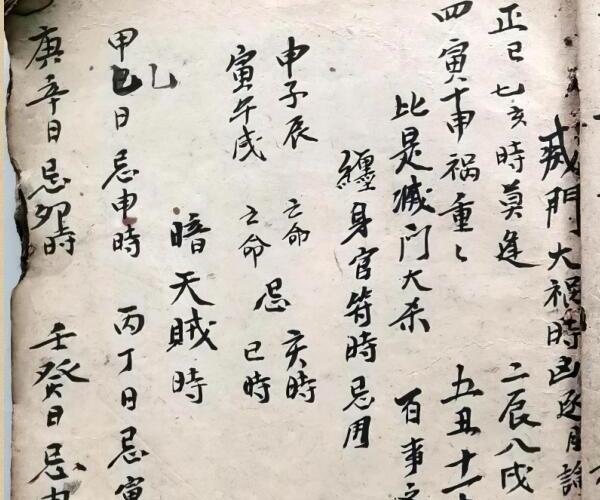 滅門大祸時凶逐月論
正巳七亥時莫逢 二辰八戌
四寅十申祸重〻 五丑十一
比是滅门大杀 百事
纏身官符時忌用
申子辰亡命 亥時
忌
寅午戌亡命 巳時
暗天賊時
甲乙日忌申時 丙丁日忌寅
庚辛日忌卯時 壬癸日忌